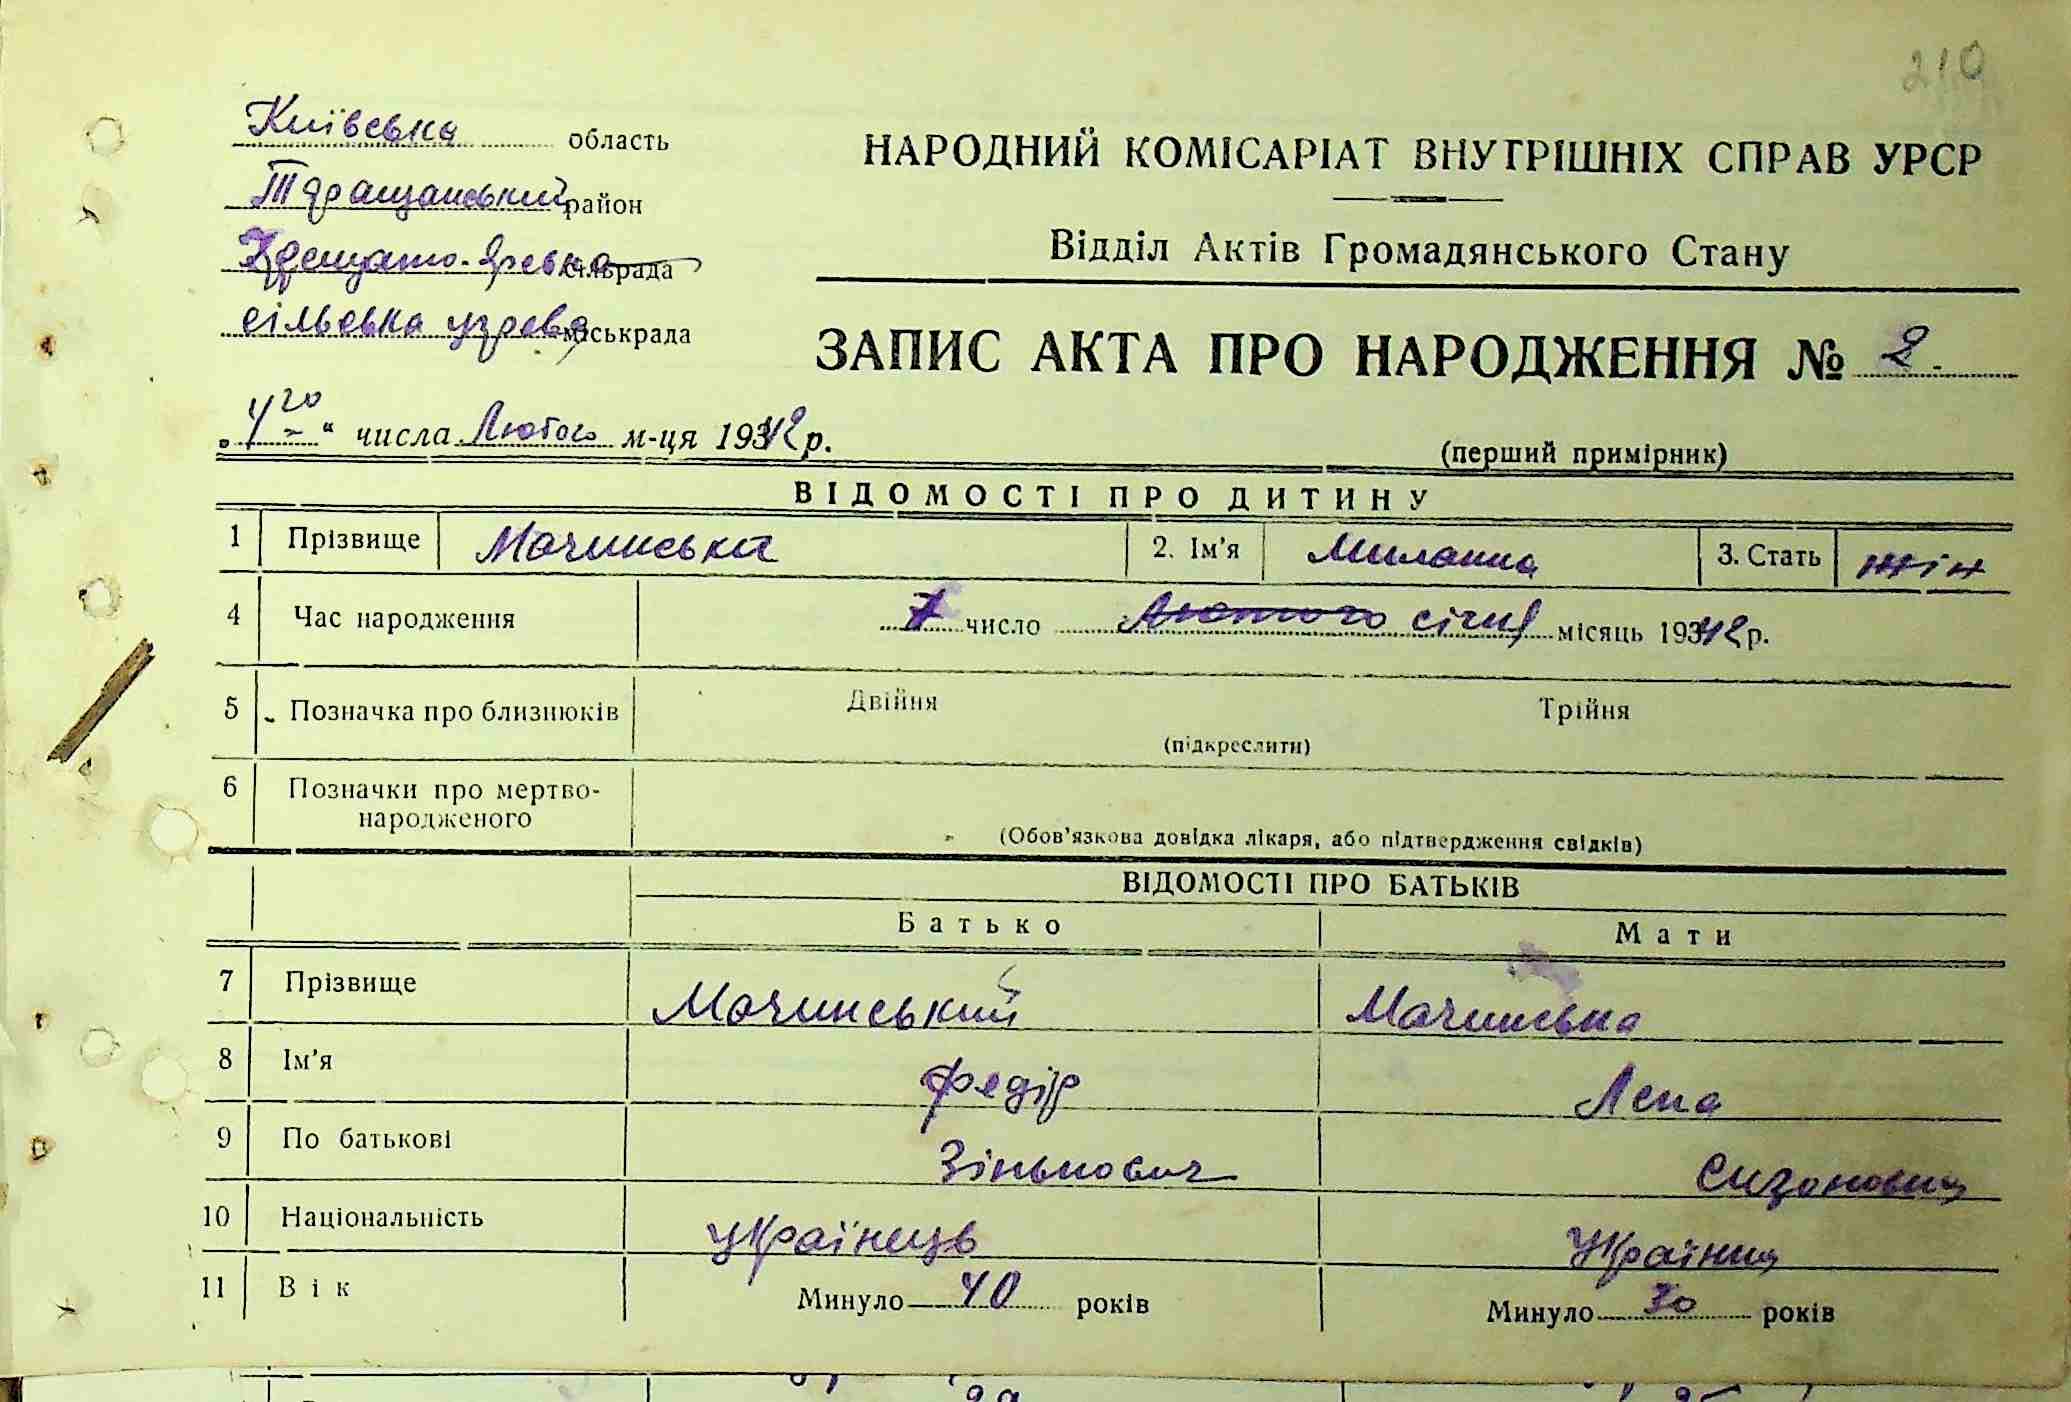 210
Київська область
Таращанський район
Хрещато-Ярська сільрада
сільська управа міськрада
НАРОДНИЙ КОМІСАРІАТ ВНУТРІШНІХ СПРАВ УРСР
Відділ Актів Громадянського Стану
ЗАПИС АКТА ПРО НАРОДЖЕННЯ № 2
„4го“ числа Лютого м-ця 1942 р.
(перший примірник)
ВІДОМОСТІ ПРО ДИТИНУ
1 Прізвище Мачинська 2. Ім'я Миланка 3. Стать жін
4 Час народження 7 число Лютого січня місяць 1942 р.
5 Позначка про близнюків Двійня Трійня
(підкреслити)
6 Позначки про мертво-
народженого
(Обов'язкова довідка лікаря, або підтвердження свідків)
ВІДОМОСТІ ПРО БАТЬКІВ
Батько Мати
7 Прізвище Мачинський Мачинська
8 Ім'я Федір Лепа
9 По батькові Зінькович Сизоновна
10 Національність українець Українка
11 Вік Минуло 40 років Минуло 30 років